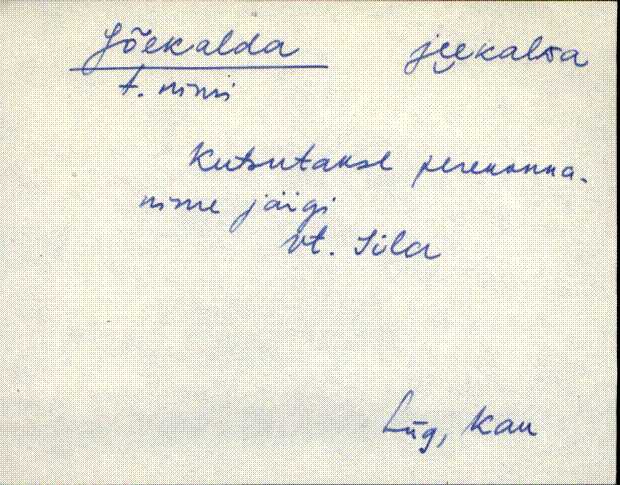 Jõekalda jeekalda
t. nimi
Kutsutakse perekonna-
nime järgi
vt. Sila
Lüg, Kau